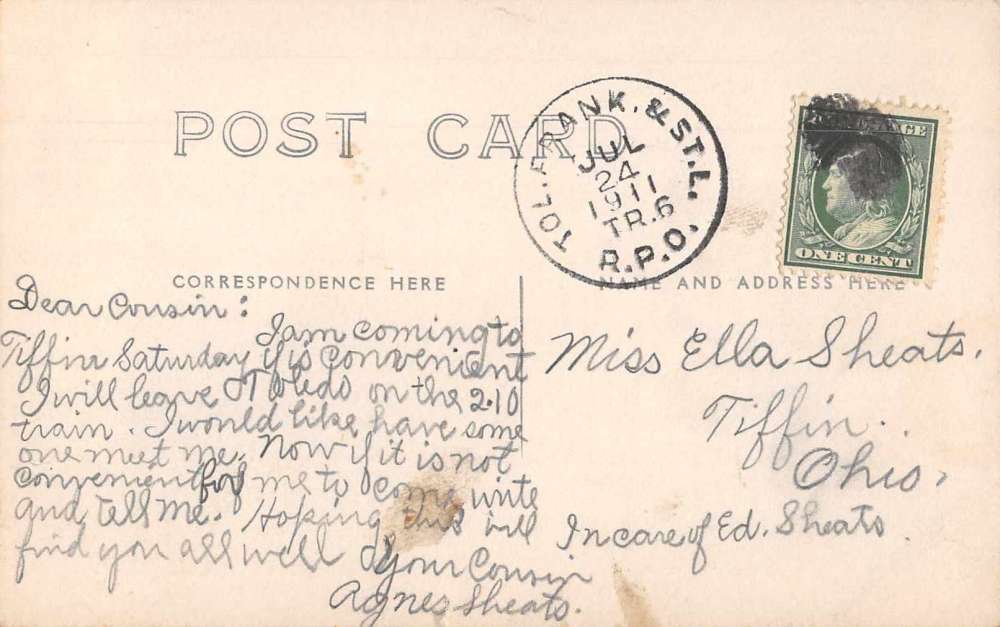 POST CARD
TOL. FRANK. & ST. L.
JUL
24
1911
TR.6
R.P.O.
ONE CENT
CORRESPONDENCE HERE
NAME AND ADDRESS HERE
Dear Cousin:
I am coming to
Tiffin Saturday if is convenient
I will leave Toledo on the 2.10
train. I would like have some
one meet me. Now if it is not
convenient for me to come write
and tell me. Hoping this will
find you all well
Your Cousin
Agnes Sheats.
Miss Ella Sheats,
Tiffin..
Ohio,
In care of Ed. Sheats